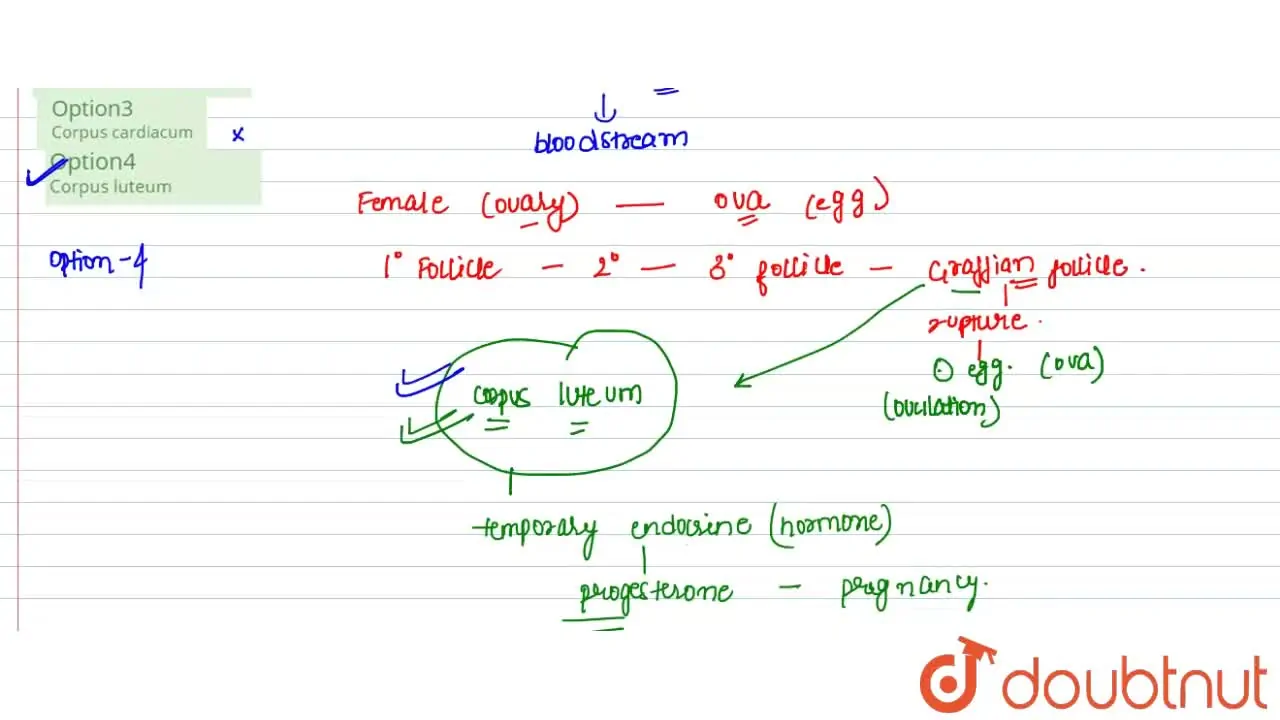 Option3
Corpus cardiacum x
Option4
Corpus luteum
bloodstream
Female (ovary) — ova (egg)
option-4
1° Follicle — 2° — 3° follicle — Graffian follicle.
rupture.
egg. (ova)
(ovulation)
corpus luteum
temporary endocrine (hormone)
progesterone — pregnancy.
doubtnut